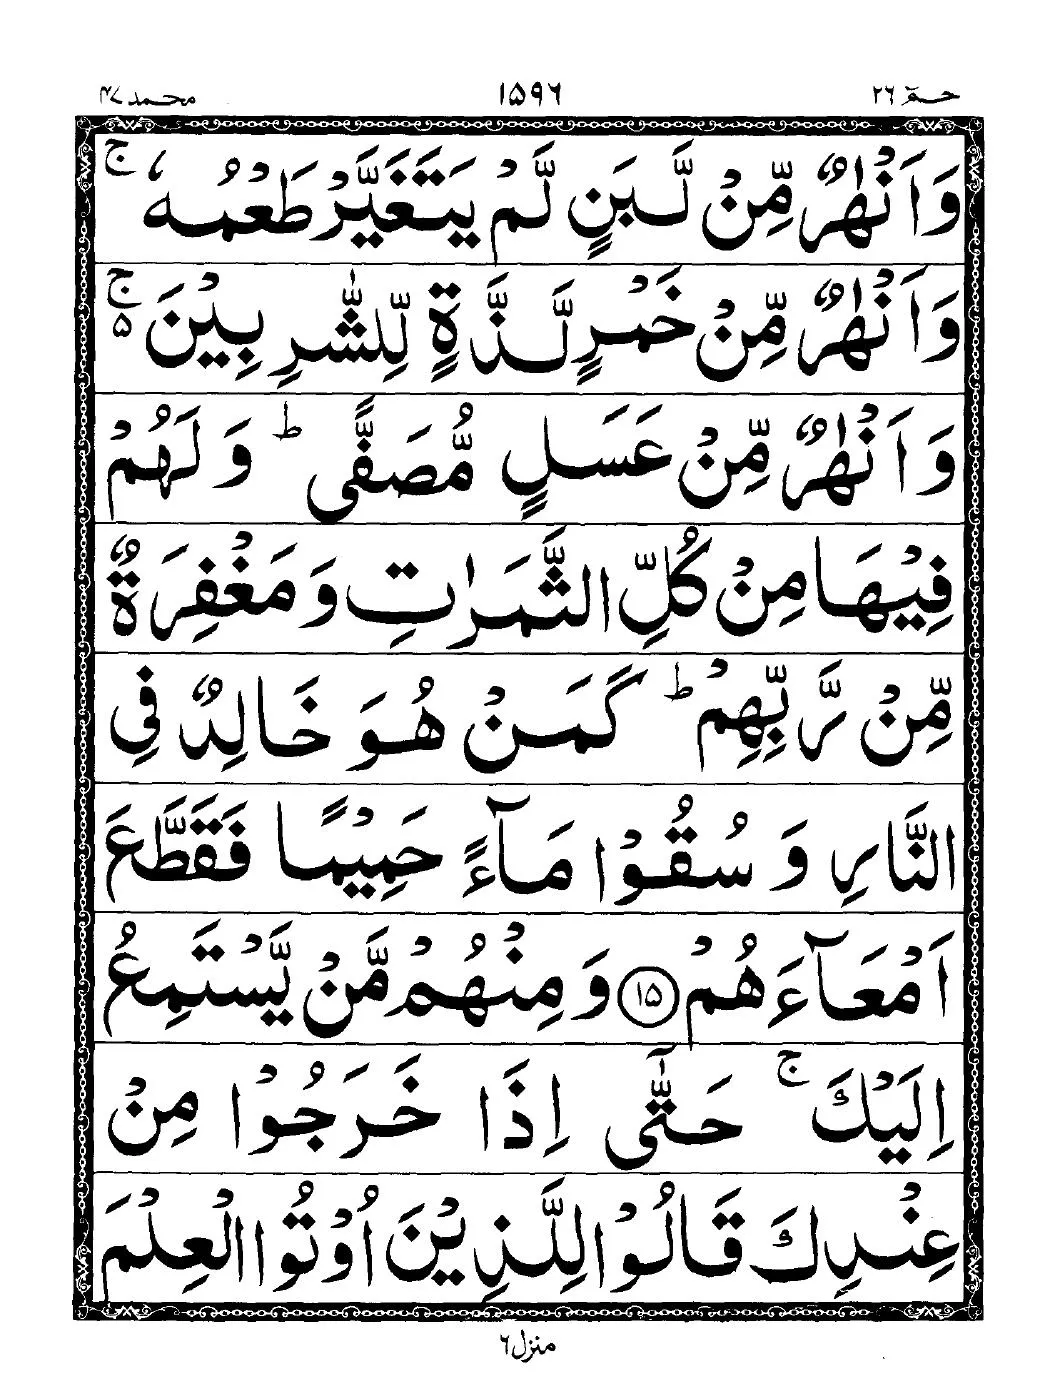 حٰمٓ ٢٦ ١٥٩٦ محمد ٤٧
وَاَنْهٰرٌ مِّنْ لَّبَنٍ لَّمْ يَتَغَيَّرْ طَعْمُهٗ ۚ
وَاَنْهٰرٌ مِّنْ خَمْرٍ لَّذَّةٍ لِّلشّٰرِبِيْنَ ۵ۚ
وَاَنْهٰرٌ مِّنْ عَسَلٍ مُّصَفًّى ؕ وَلَهُمْ
فِيْهَا مِنْ كُلِّ الثَّمَرٰتِ وَمَغْفِرَةٌ
مِّنْ رَّبِّهِمْ ؕ كَمَنْ هُوَ خَالِدٌ فِي
النَّارِ وَسُقُوْا مَآءً حَمِيْمًا فَقَطَّعَ
اَمْعَآءَهُمْ ۝۱۵ وَمِنْهُمْ مَّنْ يَّسْتَمِعُ
اِلَيْكَ ۚ حَتّٰٓى اِذَا خَرَجُوْا مِنْ
عِنْدِكَ قَالُوْا لِلَّذِيْنَ اُوْتُوا الْعِلْمَ
منزل ٦